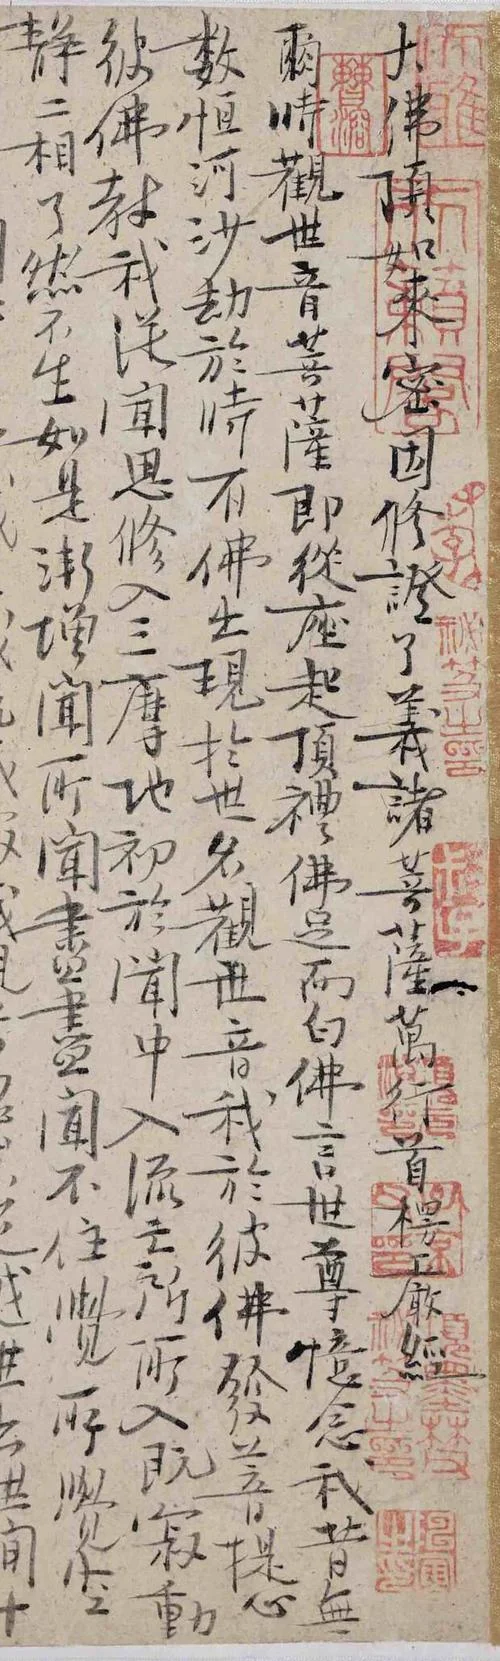 大佛頂如來密因修證了義諸菩薩萬行首楞嚴經
爾時觀世音菩薩即從座起頂禮佛足而白佛言世尊憶念我昔無
数恒河沙劫於時有佛出現於世名觀世音我於彼佛發菩提心
彼佛教我從聞思修入三摩地初於聞中入流亡所所入既寂動
靜二相了然不生如是漸增聞所聞盡盡聞不住覺所覺空
越世出世間十
曹溶